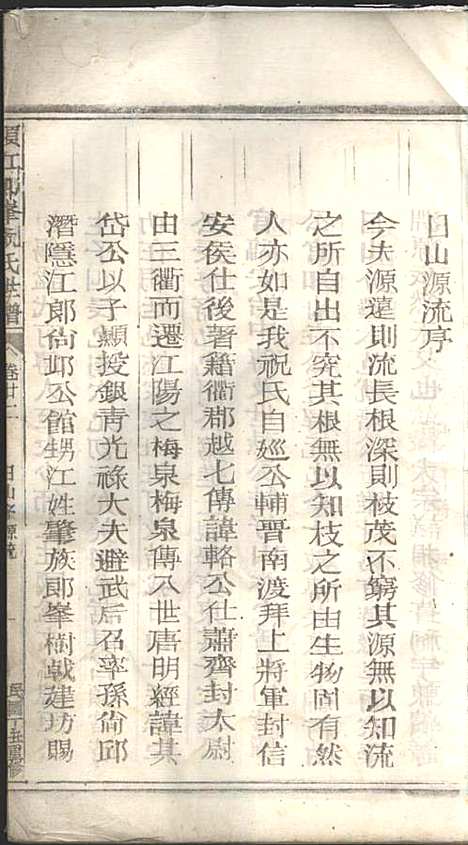 日山源流序
今夫源遠則流長根深則枝茂不窮其源無以知流
之所自出不究其根無以知枝之所由生物固有然
人亦如是我祝氏自廵公輔晋南渡拜上將軍封信
安侯仕後著籍衢郡越七傳諱輅公仕蕭齊封太尉
由三衢而遷江陽之梅泉梅泉傳入世唐明經諱其
岱公以子顯授銀青光祿大夫避武后召率孫尙邱
潛隱江郎尙邱公館甥江姓肇族郎峯樹戟建坊賜
須江郎峯祝氏世譜
卷廿二
日山 源流
民國 重修